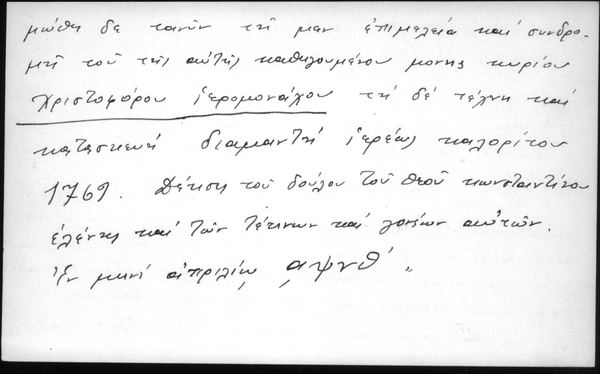 μώθη δε τανῦν τῇ μεν ἐπιμελεία καί συνδρο-
μῇ τοῦ τῆς αὐτῆς καθηγουμένου μονῆς κυρίου
Χριστοφόρου ἱερομονάχου τῇ δέ τέχνη καί
κατασκευῇ διαμαντῆ ἱερέως καλορίτου
1769. Δέησις τοῦ δούλου τοῦ θεοῦ κωνσταντίνου
ἑλένης καί τῶν τέκνων καί γονέων αὐτῶν.
Ἐν μηνί ἀπριλίῳ ͵αψνθ΄ "